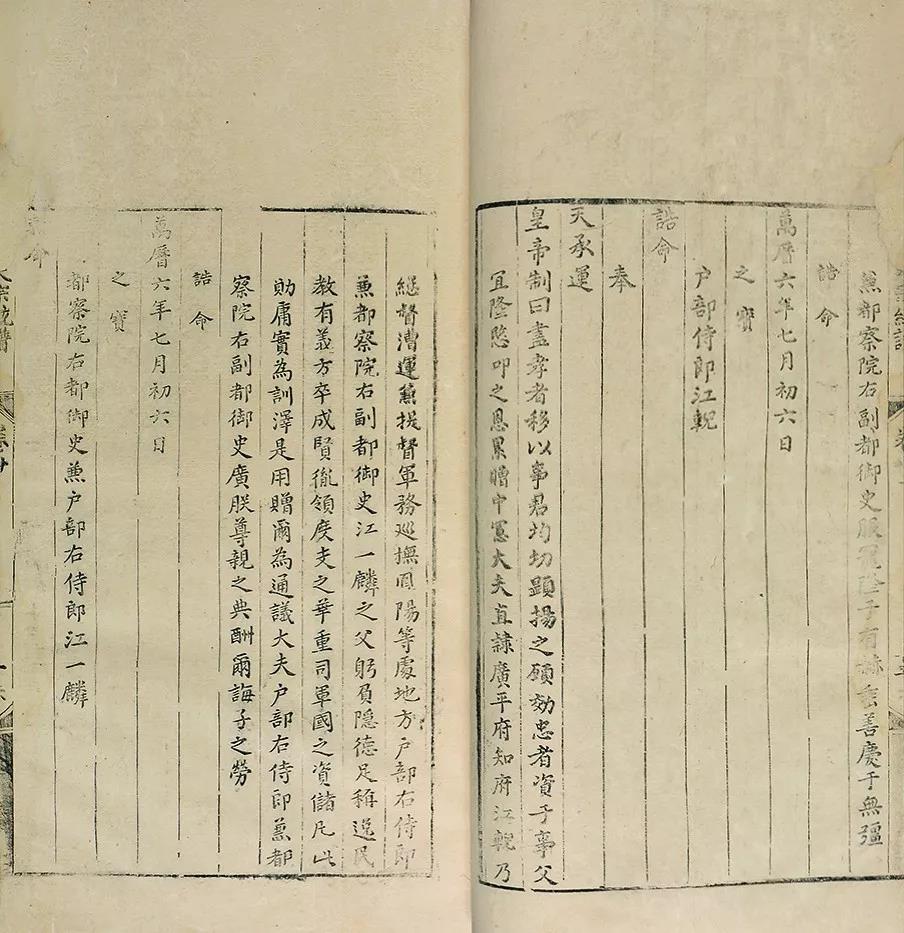 兼都察院右副都御史服寵陞于有赫𡊮善慶于無疆
誥命
萬曆六年七月初六日
之寶
户部侍郎江𫐖
誥命
奉
天承運
皇帝制曰盡孝者移以事君均切顯揚之願効忠者資于事父
宜隆愍卹之恩累贈中憲大夫直隷廣平府知府江乃
緫督漕運兼提督軍務巡撫鳳陽等處地方户部右侍郎
兼都察院右副都御史江一麟之父躬負隱德足稱逸民
教有義方卒成賢胤領度支之華重司軍國之資儲凡此
勛庸實為訓澤是用贈爾為通議大夫户部右侍郎兼都
察院右副都御史廣朕尊親之典酬爾誨子之勞
誥命
萬曆六年七月初六日
之寶
都察院右都御史兼户部右侍郎江一麟
命
宗統譜